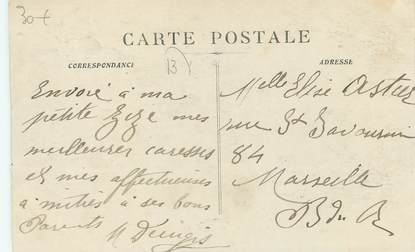 30+
CARTE POSTALE
CORRESPONDANCE
B
ADRESSE
Envoie à ma
petite Zize mes
meilleures caresses
et mes affectueuses
amitiés à ses bons
Parents
Melle Elise Astier
rue St Savournin
84
Marseille
B du R